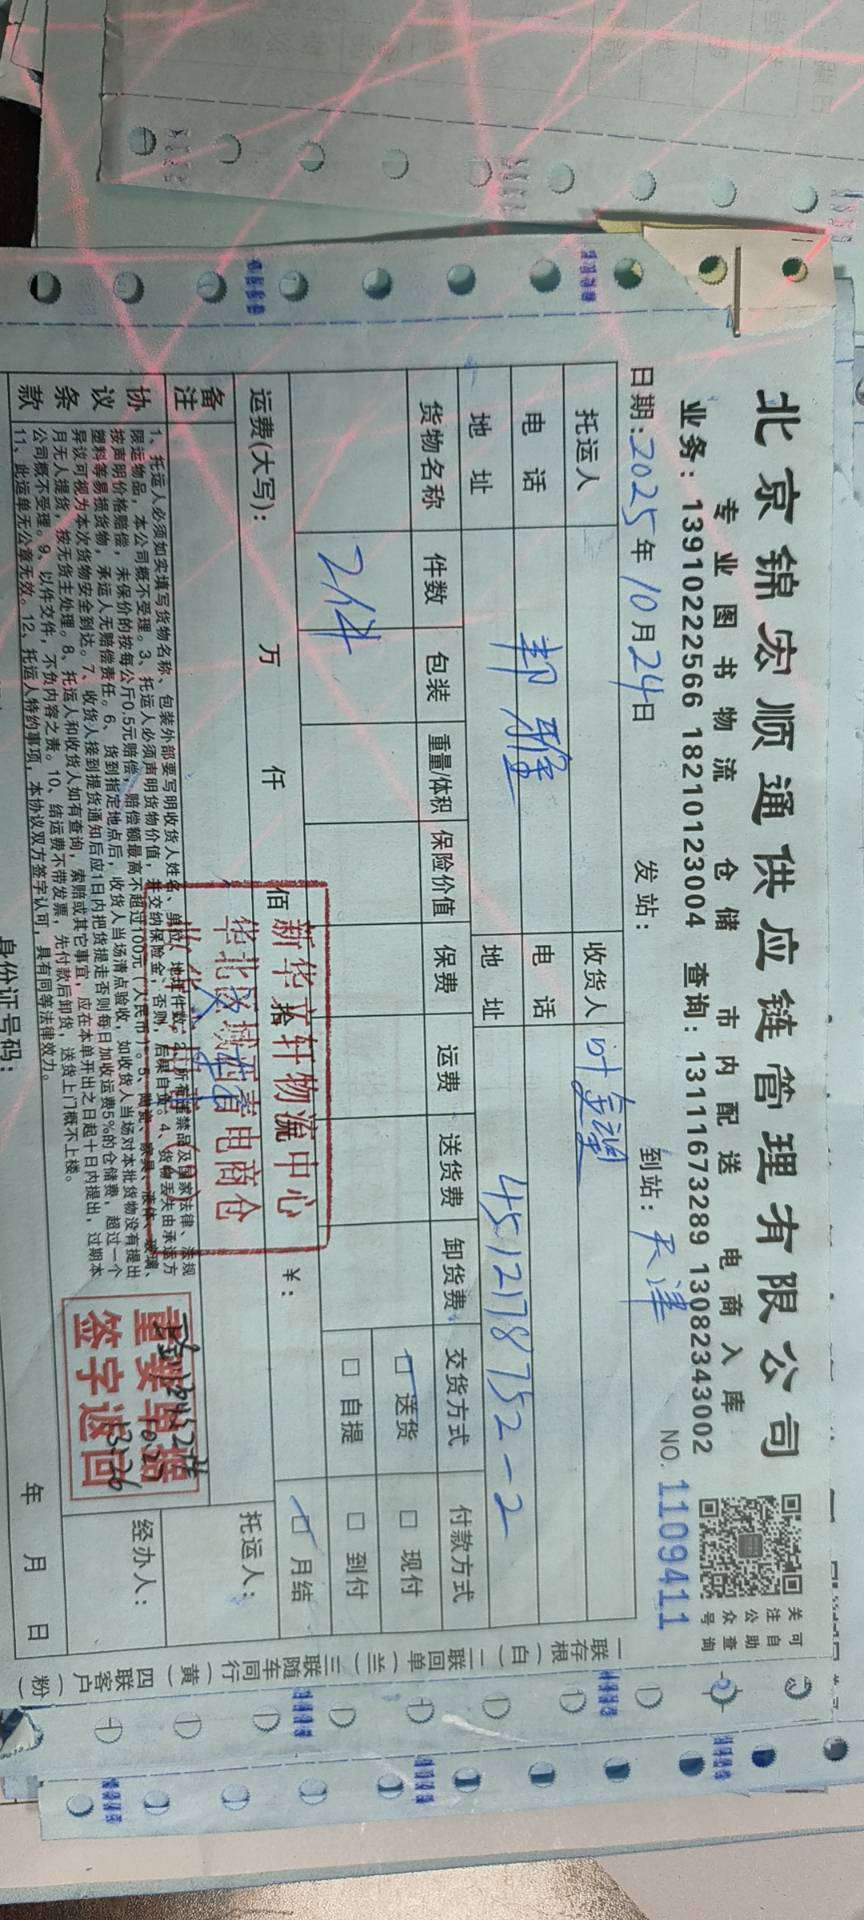 北京锦宏顺通供应链管理有限公司
专业图书物流 仓储 市内配送 电商入库
业务:13910222566 18210123004 查询:13111673289 13082343002
关注公众号
可自助查询
日期:2025年10月24日 发站: 到站:天津 NO.1109411
托运人 收货人
电话 邦雅 电话
地址 地址 4512178752-2
货物名称 件数 包装 重量/体积 保险价值 保费 运费 送货费 卸货费 交货方式 付款方式
2件 送货 现付
自提 到付
月结
运费(大写): 万 仟 佰 拾 ¥:
新华文轩物流中心
华北区域西省电商仓
备注
托运人:
经办人:
协议条款
1、托运人必须如实填写货物名称、包装外部要写明收货人姓名、单位、地址件数。2、所有违禁品及国家法律、法规
限运物品,本公司概不受理。3、托运人必须声明货物价值,并交纳保险金、否则,后果自负。4、货物丢失由承运方
按声明价格赔偿,未保价的按每公斤0.5元赔偿,赔偿额最高不超过100元(人民币)。5、陶瓷、家具、液体、玻璃、
塑料等易损货物,承运人无赔偿责任。6、货到指定地点后,收货人当场清点验收,如收货人当场对本批货物没有提出
异议可视为本次货物安全到达。7、收货人接到提货通知后应1日内把货提走否则每日加收运费5%的仓储费,超过一个
月无人提货,按无货主处理。8、托运人和收货人如有查询,索赔或其它事宜,应在本单开出之日起十日内提出,过期本
公司概不受理。9、以件交件,不负内容之责。10、结运费不带发票,先付款后卸货,送货上门概不上楼。
11、此运单无公章无效。12、托运人特约事项,本协议双方签字认可,具有同等法律效力。
重要单据
签字返回
身份证号码:
年 月 日
一联存根(白) 二联回单(兰) 三联随车同行(黄) 四联客户(粉)